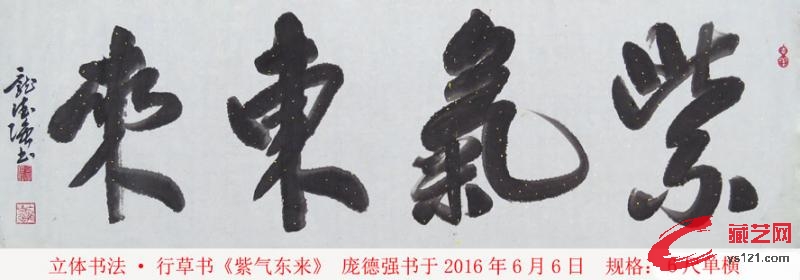 紫氣東來
龐德強书
立体书法 · 行草书《紫气东来》 庞德强书于 2016 年 6 月 6 日 规格：六尺单横
藏艺网
ys121.com